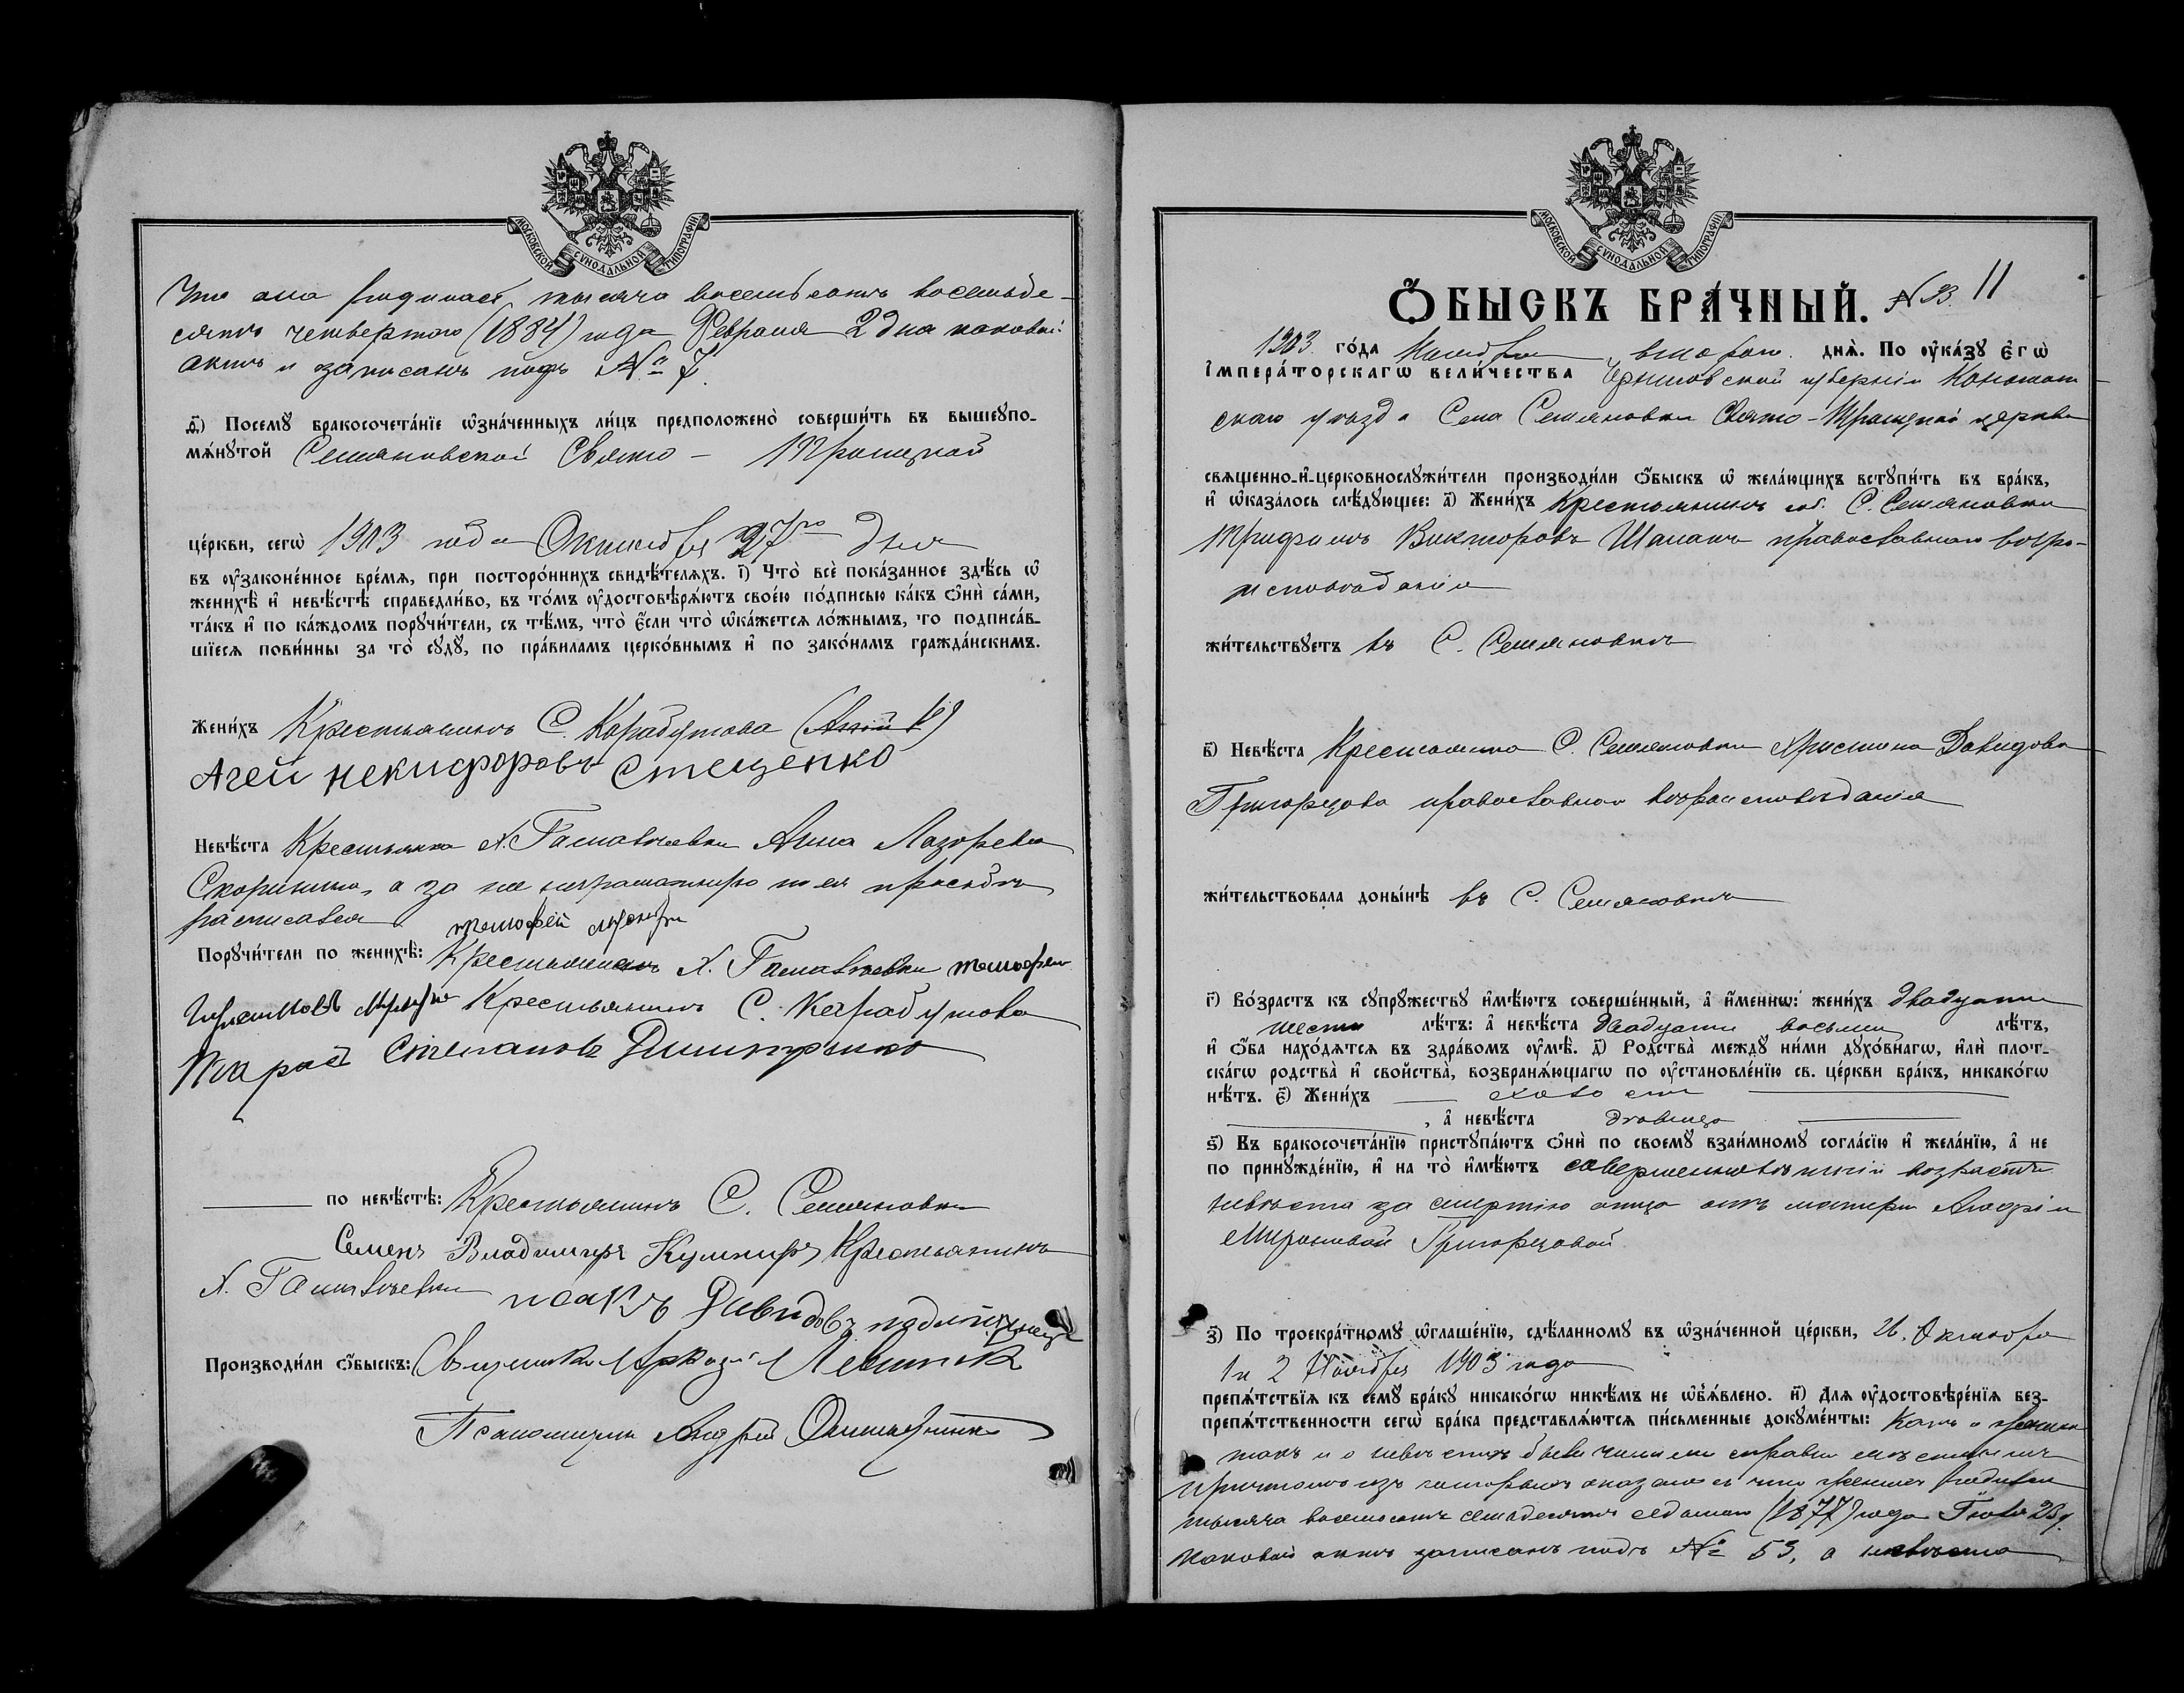 МОСКОВСКОЙ СѴНОДАЛЬНОЙ ТИПОГРАФІИ
Что она родилась тысяча восемьсотъ восемьде-
сятъ четвертого (1884) года Февраля 2 дня каковый
актъ и записанъ подъ № 7.
д҃) Посемꙋ бракосочета́нїе ѡ҆зна́ченныхъ ли́цъ предположено̀ соверши́ть въ вышеꙋпо-
мѧ́нꙋтой Семяновской Свято - Троицкой
це́ркви, сегѡ̀ 1903 года Октября 27го дня
въ ᲂу҆законе́нное вре́мѧ, при посторо́ннихъ свидѣ́телѧхъ. і҃) Что̀ всѐ пока́занное здѣ́сь ѡ҆
женихѣ̀ и҆ невѣ́стѣ справедли́во, въ то́мъ ᲂу҆достовѣрѧ́ютъ свое́ю по́дписью ка́къ ѻ҆нѝ са́ми,
та́къ и҆ по ка́ждомъ порꙋчи́тели, съ тѣ́мъ, что̀ є҆́сли что̀ ѡ҆ка́жетсѧ ло́жнымъ, то подписа́в-
шїесѧ пови́нны за то̀ сꙋдꙋ̀, по пра́виламъ церко́внымъ и҆ по зако́намъ гражда́нскимъ.
Жени́хъ Крестьянинъ С. Карабутова
Агей Некифоровъ Стеценко
Невѣ́ста Крестьянка х. Гамалѣевки Анна Лазорева
а за не неграмотную по ея просьбѣ
расписался
Порꙋчи́тели по женихѣ̀: Крестьянинъ х. Гамалѣевки
Крестьянинъ С. Карабутова
Тарас Степановъ Дмитренко
по невѣ́стѣ: Крестьянинъ С. Семяновки
Семенъ Владимиръ Кушниръ Крестьянинъ
х. Гамалѣевки Исакъ Давидовъ
Производи́ли ѻ҆́быскъ: Священикъ Аркадій Левицкій
Псаломщикъ Андрей
МОСКОВСКОЙ СѴНОДАЛЬНОЙ ТИПОГРАФІИ
Ѻ҆́БЫСКЪ БРА́ЧНЫЙ. № 33. 11
1903 го́да Ноября второго днѧ̀. По ᲂу҆ка́зꙋ є҆гѡ̀
і҆мпера́торскагѡ вели́чества Черниговской губерніи Конотоп-
скаго уезда Села Семяновки Свято-Троицкой церкви
свѧщенно-и҆-церковнослꙋжи́тели производи́ли ѻ҆́быскъ ѡ҆ жела́ющихъ встꙋпи́ть въ бра́къ,
и҆ ѡ҆каза́лось слѣ́дꙋющее: а҃) Жени́хъ Крестьянинъ С. Семяновки
Трифонъ Викторовъ Шапанъ православнаго веро-
исповѣданія
жи́тельствꙋетъ въ С. Семяновкѣ
в҃) Невѣ́ста Крестьянка С. Семяновки Христина Давидова
Григорцова православнаго вѣроисповѣданія
жи́тельствовала доны́нѣ въ С. Семяновкѣ
г҃) Во́зрастъ къ сꙋпрꙋ́жествꙋ и҆мѣ́ютъ соверше́нный, а҆ и҆́меннѡ: жени́хъ двадцати
шести лѣ́тъ: а҆ невѣ́ста двадцати восьми лѣ́тъ,
и҆ ѻ҆́ба нахо́дѧтсѧ въ здра́вомъ ᲂу҆мѣ̀. д҃) Родства̀ междꙋ ни́ми дꙋхо́внагѡ, и҆лѝ плот-
ска́гѡ родства̀ и҆ сво́йства̀, возбранѧ́ющагѡ по ᲂу҆становле́нїю св. це́ркви бра́къ, никако́гѡ
нѣ́тъ. є҃) Жени́хъ холостъ
, а҆ невѣ́ста дѣвица
ѕ҃) Въ бракосочета́нїю пристꙋпа́ютъ ѻ҆нѝ по своемꙋ̀ взаи́мномꙋ согла́сїю и҆ жела́нїю, а҆ не
по принꙋжде́нїю, и҆ на то̀ и҆мѣ́ютъ совершеннолѣтній возрастъ
невѣста за смертію отца отъ матери
Мироновой Григорцовой
з҃) По троекра́тномꙋ ѡ҆глаше́нїю, сдѣ́ланномꙋ въ ѡ҆зна́ченной це́ркви, 26. Октября
1 и 2 Ноября 1903 года
препѧ́тствїѧ къ семꙋ̀ бра́кꙋ никако́гѡ никѣ́мъ не ѡ҆б̾ѧ́влено. и҃) Длѧ ᲂу҆достовѣре́нїѧ без-
препѧ́тственности сегѡ̀ бра́ка представлѧ́ютсѧ пи́сьменные докꙋме́нты: Какъ о женихѣ
такъ и о невѣстѣ были чинили справки
причтомъ изъ которыхъ оказалось что женихъ родился
тысяча восемьсотъ семьдесятъ седьмого (1877) года Іюля 23 д.
каковый актъ записанъ подъ № 53, а невѣста